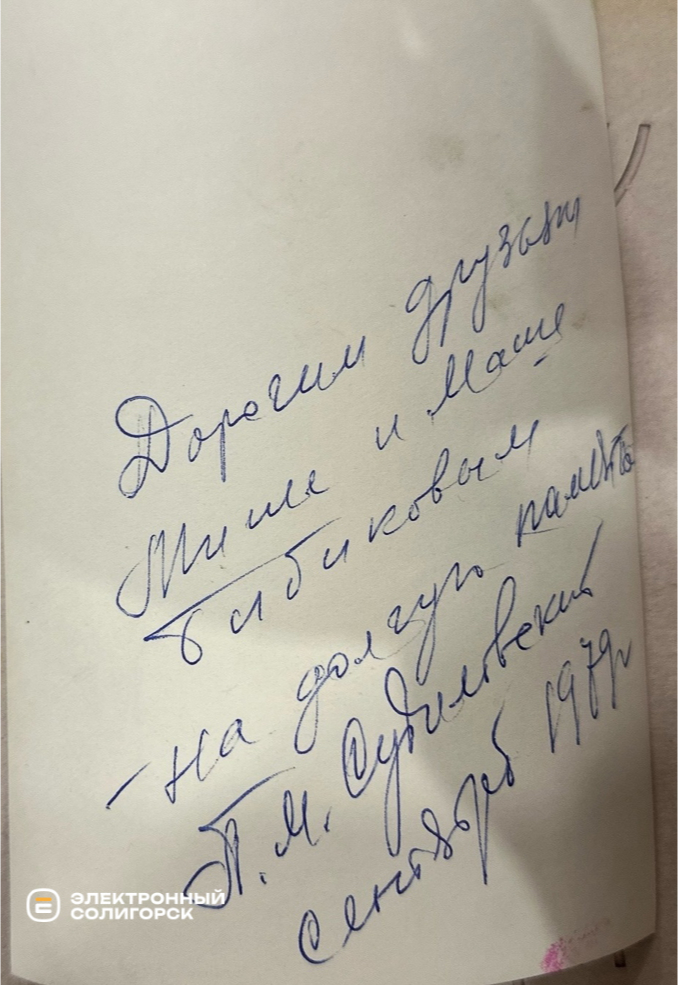 Дорогим друзьям
Мише и Маше
Бибиковым
- на долгую память
П.М. Судиловский
сентябрь 1979г
ЭЛЕКТРОННЫЙ
СОЛИГОРСК